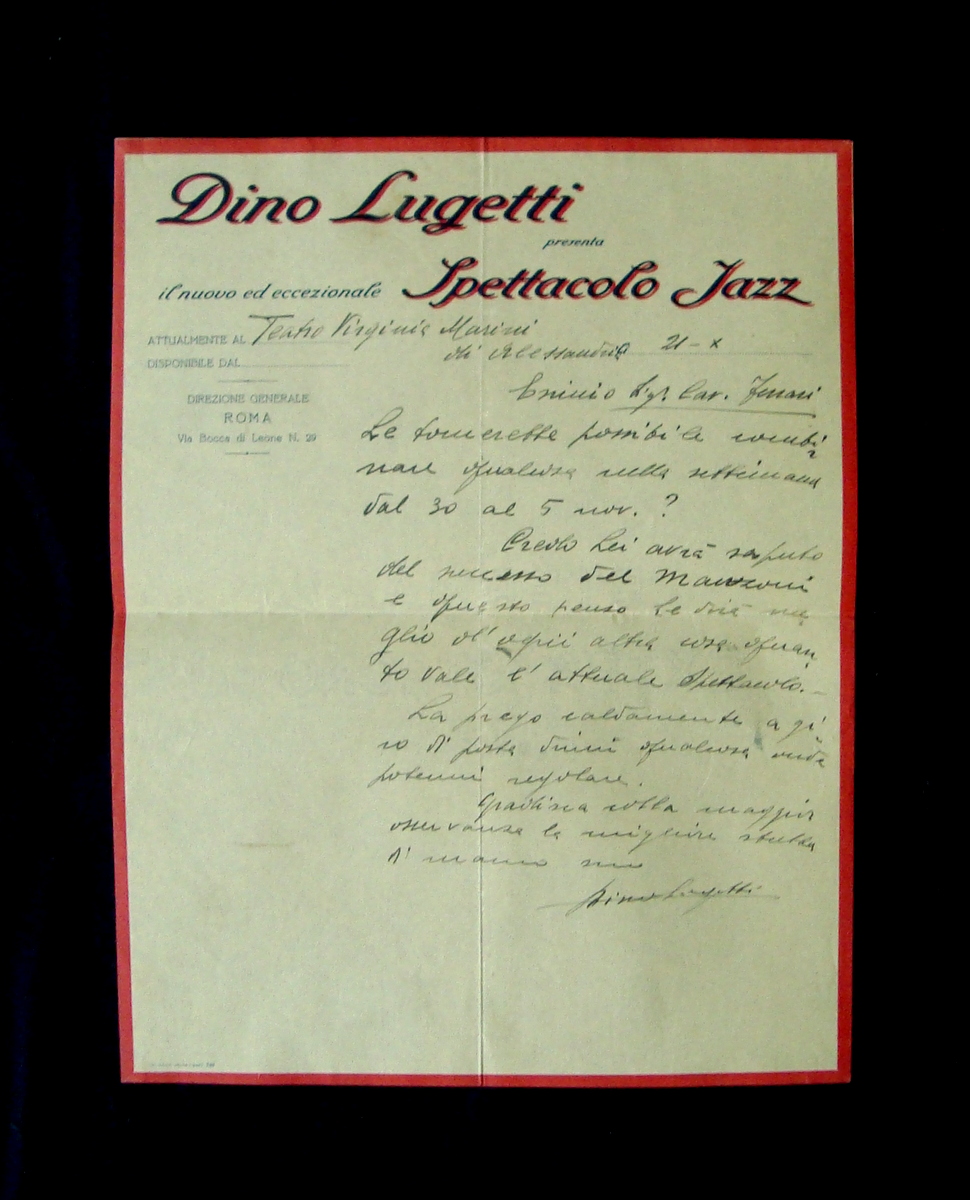 Dino Lugetti
presenta
il nuovo ed eccezionale Spettacolo Jazz
ATTUALMENTE AL Teatro Virginia Marini
di Alessandria 21-x
DISPONIBILE DAL
DIREZIONE GENERALE
ROMA
Via Bocca di Leone N. 29
Esimio Sigr. Cav. Ferrari
Le tornerebbe possibile combi
nare qualcosa nella settimana
dal 30 al 5 nov. ?
Credo Lei avrà saputo
del successo del Manzoni
e questo penso Le dirà me
glio d'ogni altra cosa quan
to vale l'attuale Spettacolo.
La prego caldamente a gi
ro di posta dirmi qualcosa onde
potermi regolare.
Gradisca colla maggior
osservanza la migliore stretta
di mano suo
Dino Lugetti